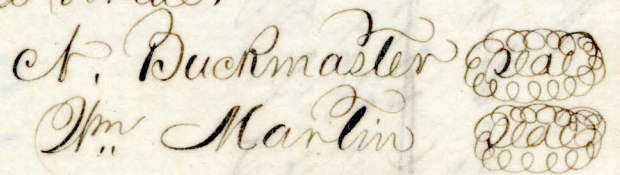 N. Buckmaster Seal
Wm Martin Seal